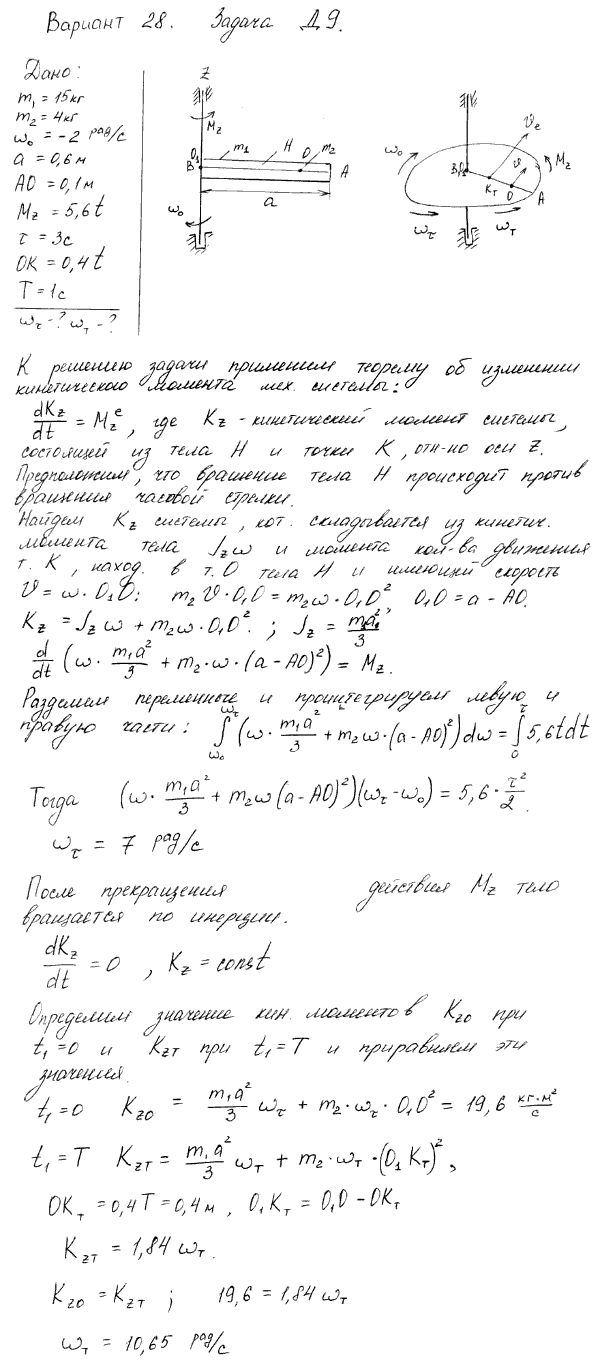 Вариант 28. Задача Д9.
Дано:
m₁ = 15кг
m₂ = 4кг
ω₀ = -2 рад/с
a = 0,6 м
AO = 0,1 м
M_z = 5,6t
τ = 3с
OK = 0,4t
T = 1с
ω_τ - ? ω_т - ?
Z
M_z
O₁ m₁ H O m₂
B A
a
ω₀
ω₀ V_e M_z
B,O₁ V
K_т O A
ω_τ ω_т
К решению задачи применим теорему об изменении
кинетического момента мех. системы:
dK_z/dt = M_z^e, где K_z - кинетический момент системы,
состоящей из тела H и точки K, отн-но оси Z.
Предположим, что вращение тела H происходит против
вращения часовой стрелки.
Найдем K_z системы, кот. складывается из кинетич.
момента тела J_zω и момента кол-ва движения
т. K, наход. в т. O тела H и имеющей скорость
V = ω·O₁O: m₂V·O₁O = m₂ω·O₁O², O₁O = a - AO.
K_z = J_z ω + m₂ω·O₁O². ; J_z = m₁a²/3
d/dt (ω· m₁a²/3 + m₂·ω·(a - AO)²) = M_z.
Разделим переменные и проинтегрируем левую и
правую части: ∫_ω₀^ω_τ (ω· m₁a²/3 + m₂ω·(a - AO)²) dω = ∫_0^τ 5,6t dt
Тогда (ω· m₁a²/3 + m₂ω(a - AO)²)(ω_τ - ω₀) = 5,6· τ²/2.
ω_τ = 7 рад/с
После прекращения действия M_z тело
вращается по инерции.
dK_z/dt = 0, K_z = const
Определим значение кин. моментов K_z0 при
t₁ = 0 и K_zт при t₁ = T и приравняем эти
значения.
t₁ = 0 K_z0 = m₁a²/3 ω_τ + m₂·ω_τ·O₁O² = 19,6 кг·м²/с
t₁ = T K_zт = m₁a²/3 ω_т + m₂·ω_т·(O₁K_т)²,
OK_т = 0,4T = 0,4 м, O₁K_т = O₁O - OK_т
K_zт = 1,84 ω_т.
K_z0 = K_zт ; 19,6 = 1,84 ω_т
ω_т = 10,65 рад/с